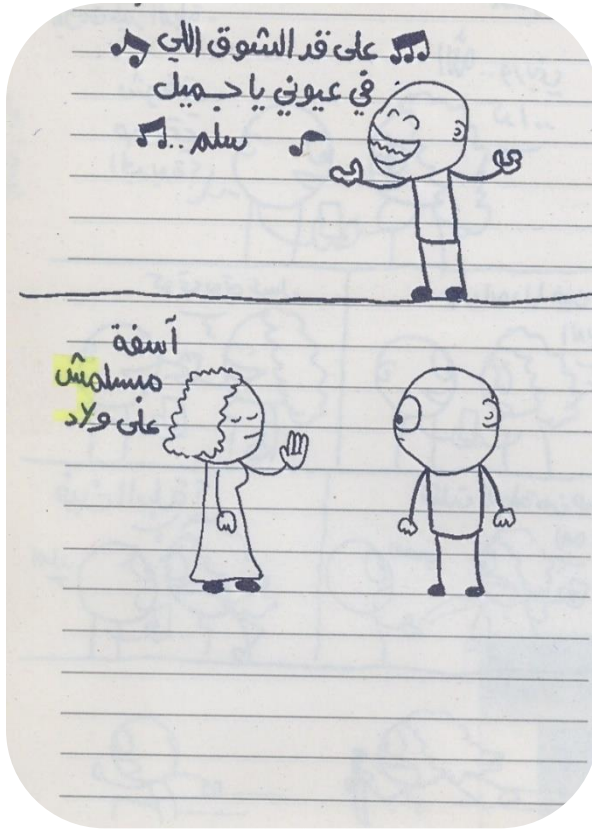 على قد الشوق اللي
في عيوني يا جميل
سلم..
آسفة
مبسلمش
على ولاد